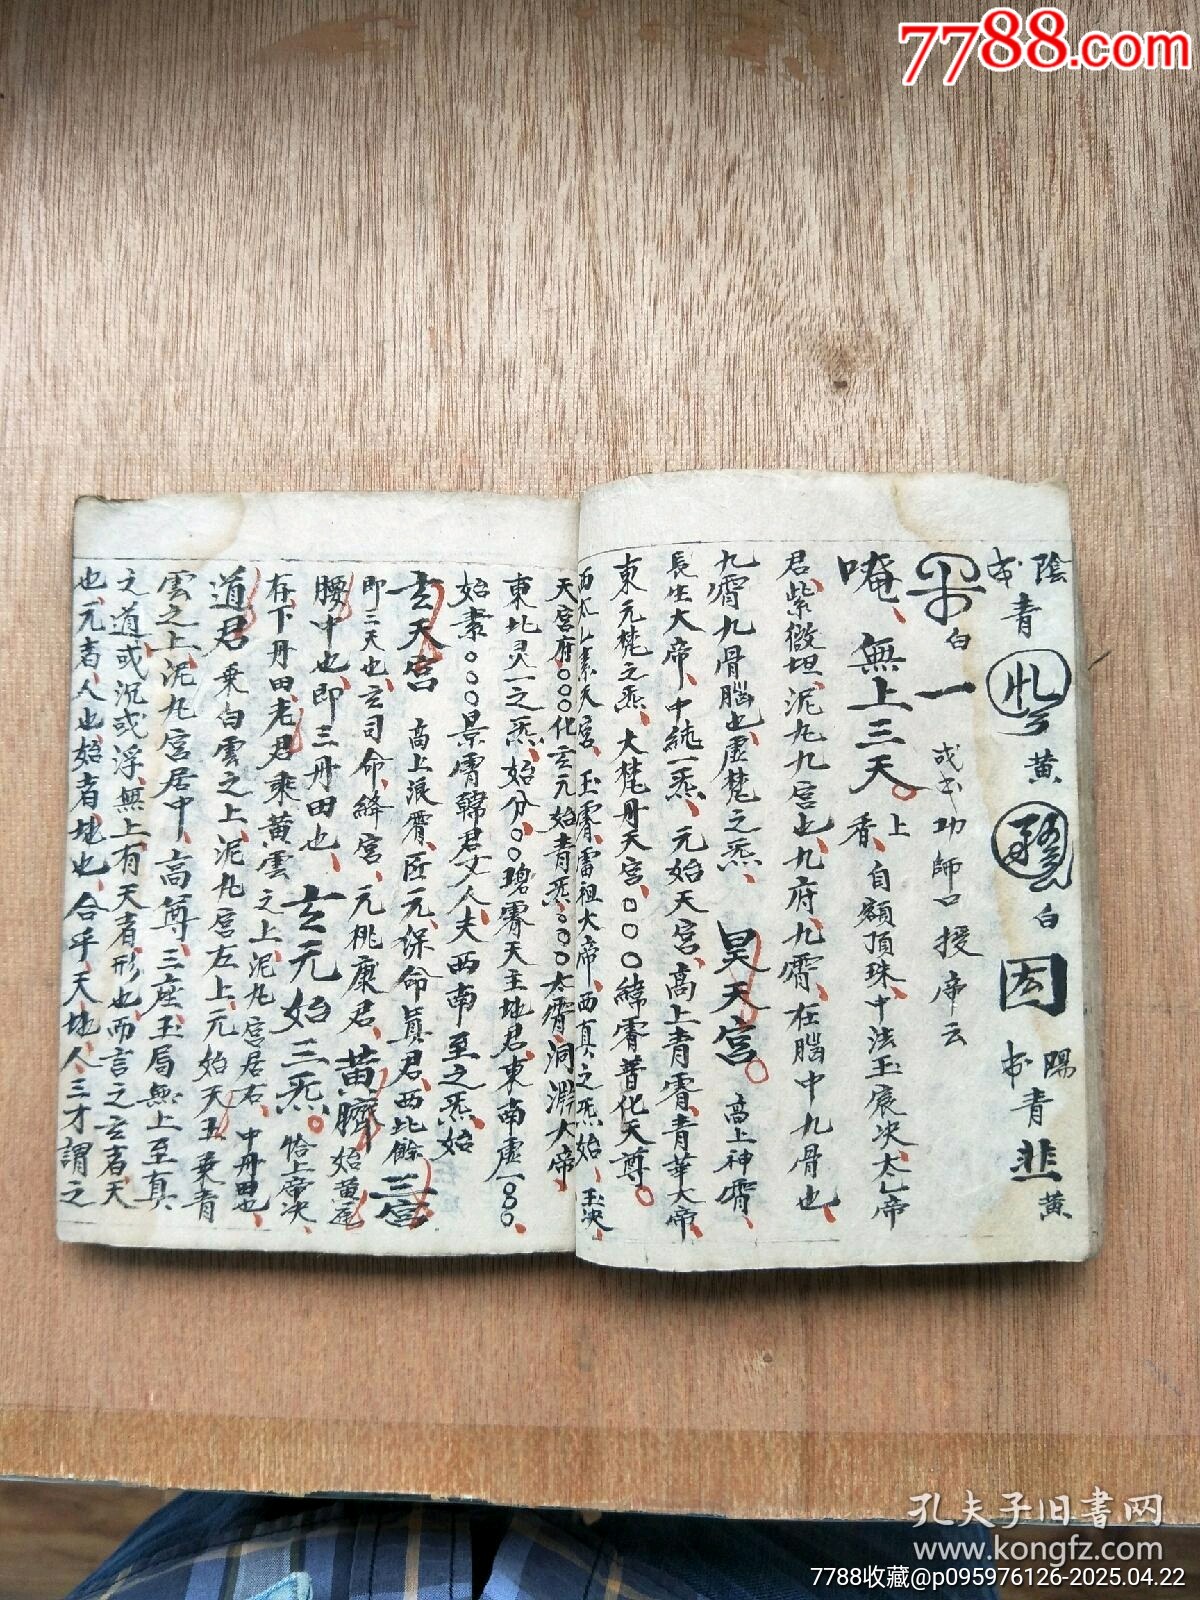 7788.com
陰 青 黄 白 因 陽 青 韭 黄
白 一 功師口授帝云
唵、無上三天。上香、自額頂珠中法玉宸决、太乙帝
君、紫微垣、泥丸九宮也、九府、九霄、在腦中九骨也、
九霄九骨腦也、虛梵之炁、昊天宮。高上神霄、
長生大帝、中純一炁、元始天宮、高上青霄、青華大帝、
東元梵之炁、大梵丹天宮、○○○緯霄普化天尊。
素天宮、玉霄、雷祖大帝、西真之炁始、玉决、
天宮府、○○○化玄元始青炁、○○○太霄、洞淵大帝、
東北灵一之炁、始分、○○碧霄天主地君、東南虛一○○、
始素○○○景霄韓君丈人、夫西南至之炁、始
玄天宮 高上浪霄、匠元、保命真君、西北餘三宮
即三天也、玄司命、絳宮、元桃康君、黄臍始黄庭
腰中也、即三丹田也、玄元始三炁。恰上帝决、
在下丹田、老君乘黄雲之上、泥丸宮居右、中丹田也、
道君乘白雲之上、泥丸宮左上、元始天王乘青
雲之上、泥丸宮居中、高尊、三座玉局無上至真
之道、或沉或浮、無上有天者、形也、而言之玄者、天
也、元者、人也、始者、地也、合乎天、地、人、三才謂之
孔夫子旧書网
www.kongfz.com
7788收藏@p095976126-2025.04.22